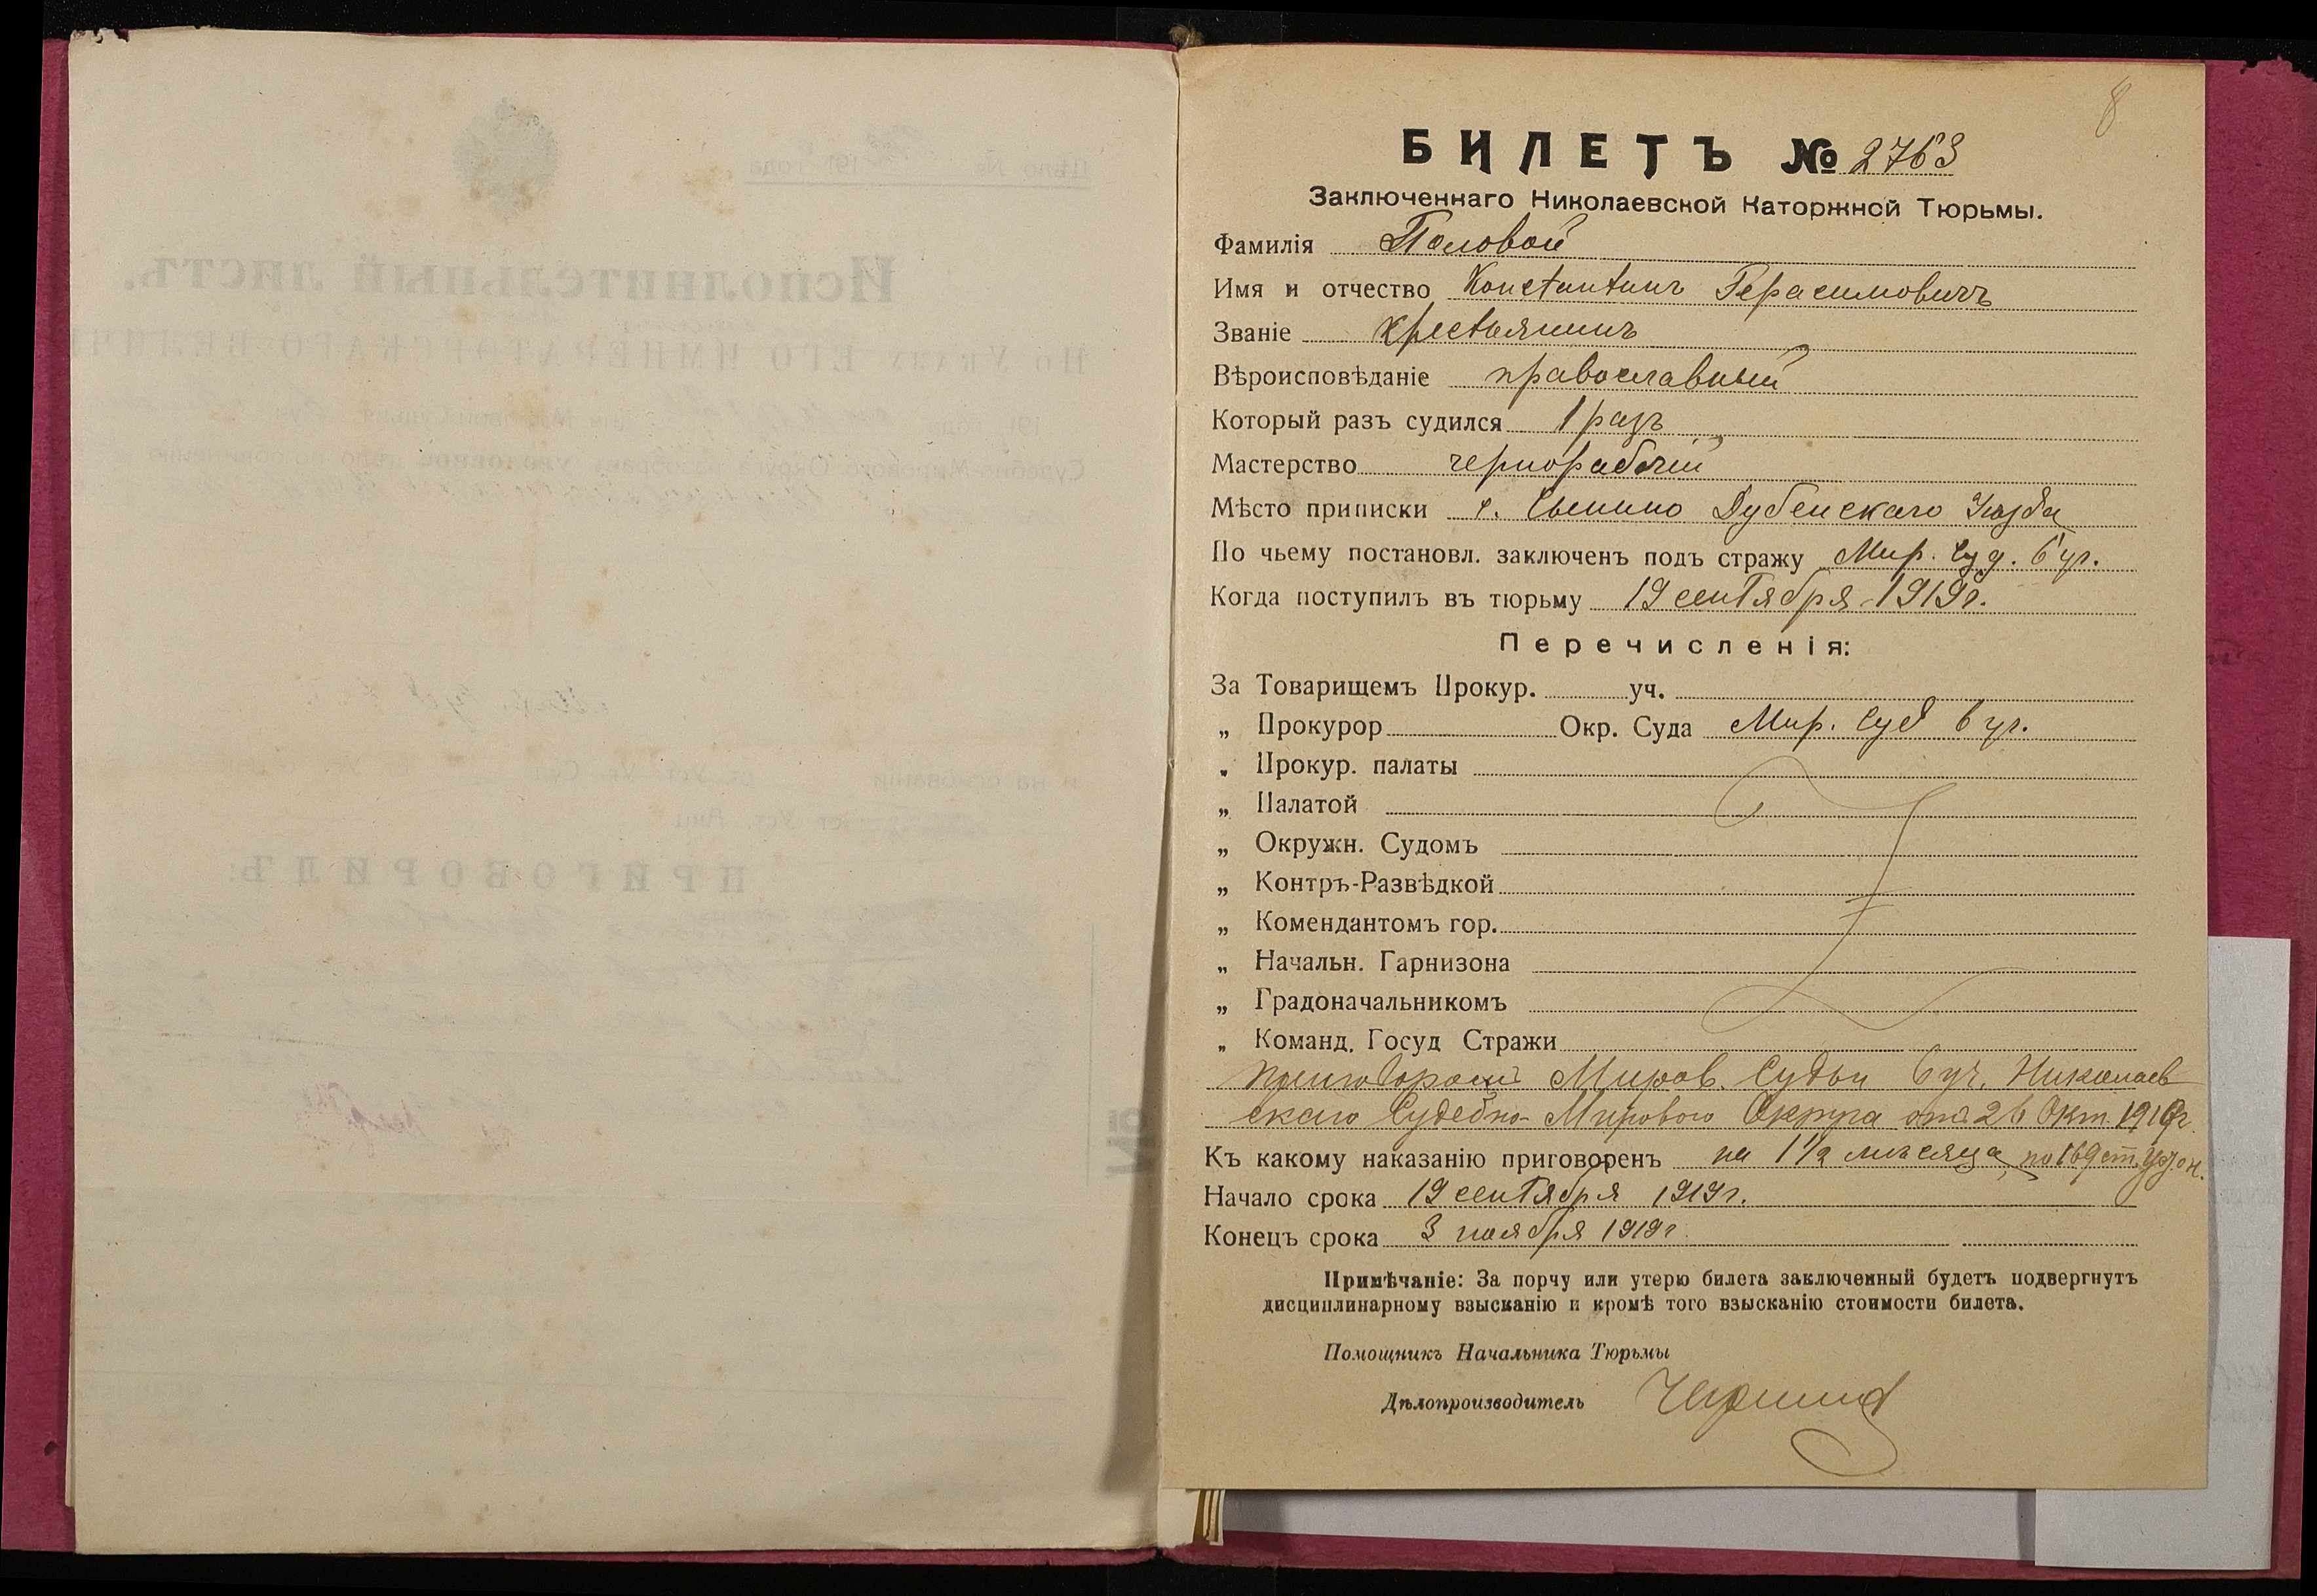 8
БИЛЕТЪ № 2763
Заключеннаго Николаевской Каторжной Тюрьмы.
Фамилія Половой
Имя и отчество Константинъ Герасимовичъ
Званіе крестьянинъ
Вѣроисповѣданіе православный
Который разъ судился 1 разъ
Мастерство чернорабочій
Мѣсто приписки с. Дубенскаго Уѣзда
По чьему постановл. заключенъ подъ стражу Мир. Суд. 6 уч.
Когда поступилъ въ тюрьму 19 сентября 1919г.
Перечисленія:
За Товарищемъ Прокур. уч.
„ Прокурор Окр. Суда Мир. Суд 6 уч.
„ Прокур. палаты
„ Палатой
„ Окружн. Судомъ
„ Контръ-Развѣдкой
„ Комендантомъ гор.
„ Начальн. Гарнизона
„ Градоначальникомъ
„ Команд. Госуд Стражи
Приговоромъ Миров. Судьи 6 уч. Николаев
скаго Судебно-Мирового Округа отъ 26 Окт. 1918г.
Къ какому наказанію приговоренъ на 1 1/2 мѣсяца, по 169 ст.
Начало срока 19 сентября 1919г.
Конецъ срока 3 ноября 1919г
Примѣчаніе: За порчу или утерю билета заключенный будетъ подвергнутъ
дисциплинарному взысканію и кромѣ того взысканію стоимости билета.
Помощникъ Начальника Тюрьмы
Дѣлопроизводитель
Дѣло № 191 года
Исполнительный листъ.
По Указу ЕГО ИМПЕРАТОРСКАГО
ПРИГОВОРИЛЪ: